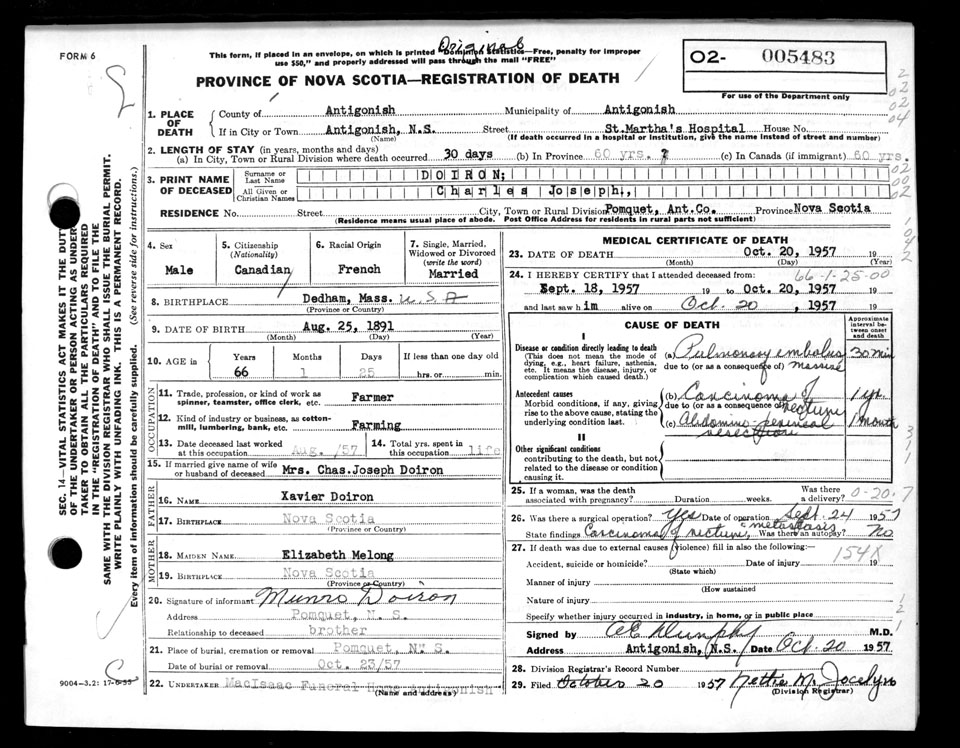 FORM 6
Original
This form, if placed in an envelope, on which is printed "Dominion Statistics—Free, penalty for improper
use $50," and properly addressed will pass through the mail "FREE"
PROVINCE OF NOVA SCOTIA—REGISTRATION OF DEATH
O2- 005483
For use of the Department only
SEC. 14—VITAL STATISTICS ACT MAKES IT THE DUTY
OF THE UNDERTAKER OR PERSON ACTING AS UNDER
TAKER TO OBTAIN ALL THE PARTICULARS REQUIRED
IN THE "REGISTRATION OF DEATH" AND TO FILE THE
SAME WITH THE DIVISION REGISTRAR WHO SHALL ISSUE THE BURIAL PERMIT.
WRITE PLAINLY WITH UNFADING INK. THIS IS A PERMANENT RECORD.
Every item of information should be carefully supplied. (See reverse side for instructions.)
1. PLACE OF DEATH
County of Antigonish Municipality of Antigonish
If in City or Town Antigonish, N.S. Street St.Martha's Hospital House No.
(Name) (If death occurred in a hospital or institution, give the name instead of street and number)
2. LENGTH OF STAY (in years, months and days)
(a) In City, Town or Rural Division where death occurred 30 days (b) In Province 60 yrs. ? (c) In Canada (if immigrant) 60 yrs.
3. PRINT NAME OF DECEASED
Surname or Last Name DOIRON;
All Given or Christian Names Charles Joseph,
RESIDENCE No. Street City, Town or Rural Division Pomquet, Ant.Co. Province Nova Scotia
(Residence means usual place of abode. Post Office Address for residents in rural parts not sufficient)
4. Sex
Male
5. Citizenship
(Nationality)
Canadian
6. Racial Origin
French
7. Single, Married, Widowed or Divorced
(write the word)
Married
8. BIRTHPLACE Dedham, Mass. U.S.A
(Province or Country)
9. DATE OF BIRTH Aug. 25, 1891
(Month) (Day) (Year)
10. AGE in Years Months Days If less than one day old
66 1 25 hrs. or min.
OCCUPATION
11. Trade, profession, or kind of work as
spinner, teamster, office clerk, etc. Farmer
12. Kind of industry or business, as cotton-
mill, lumbering, bank, etc. Farming
13. Date deceased last worked
at this occupation Aug. /57
14. Total yrs. spent in
this occupation life
15. If married give name of wife
or husband of deceased Mrs. Chas.Joseph Doiron
FATHER
16. NAME Xavier Doiron
17. BIRTHPLACE Nova Scotia
(Province or Country)
MOTHER
18. MAIDEN NAME Elizabeth Melong
19. BIRTHPLACE Nova Scotia
(Province or Country)
20. Signature of informant Munro Doiron
Address Pomquet, N. S.
Relationship to deceased brother
21. Place of burial, cremation or removal Pomquet, N. S.
Date of burial or removal Oct. 23/57
22. UNDERTAKER MacIsaac Funeral Home Antigonish
(Name and address)
9004-3.2: 17-6-55
MEDICAL CERTIFICATE OF DEATH
23. DATE OF DEATH Oct. 20, 1957 19
(Month) (Day) (Year)
66-1-25-00
24. I HEREBY CERTIFY that I attended deceased from:
Sept. 18, 1957 19 to Oct. 20, 1957 19
and last saw him alive on Oct. 20, 1957
CAUSE OF DEATH
Approximate interval between onset and death
I
Disease or condition directly leading to death
(This does not mean the mode of
dying, e.g., heart failure, asthenia,
etc. It means the disease, injury, or
complication which caused death.)
(a) Pulmonary embolus 30 min
due to (or as a consequence of) massive
Antecedent causes
Morbid conditions, if any, giving
rise to the above cause, stating the
underlying condition last.
(b) Carcinoma of 1 yr.
due to (or as a consequence of) rectum
(c) Abdomino-perineal 1 month
resection
II
Other significant conditions
contributing to the death, but not
related to the disease or condition
causing it.
25. If a woman, was the death
associated with pregnancy? Duration weeks. Was there a delivery? 0-20-7
26. Was there a surgical operation? Yes Date of operation Sept. 24 1957
State findings Carcinoma of rectum, "metastasis" Was there an autopsy? No
27. If death was due to external causes (violence) fill in also the following:—
Accident, suicide or homicide? Date of injury 19
154X
(State which)
Manner of injury
(How sustained
Nature of injury
Specify whether injury occurred in industry, in home, or in public place
Signed by CE Dunphy M.D.
Address Antigonish, N.S. Date Oct. 20 1957
28. Division Registrar's Record Number
29. Filed October 20 1957 Nettie M. Jocelyn
(Division Registrar)